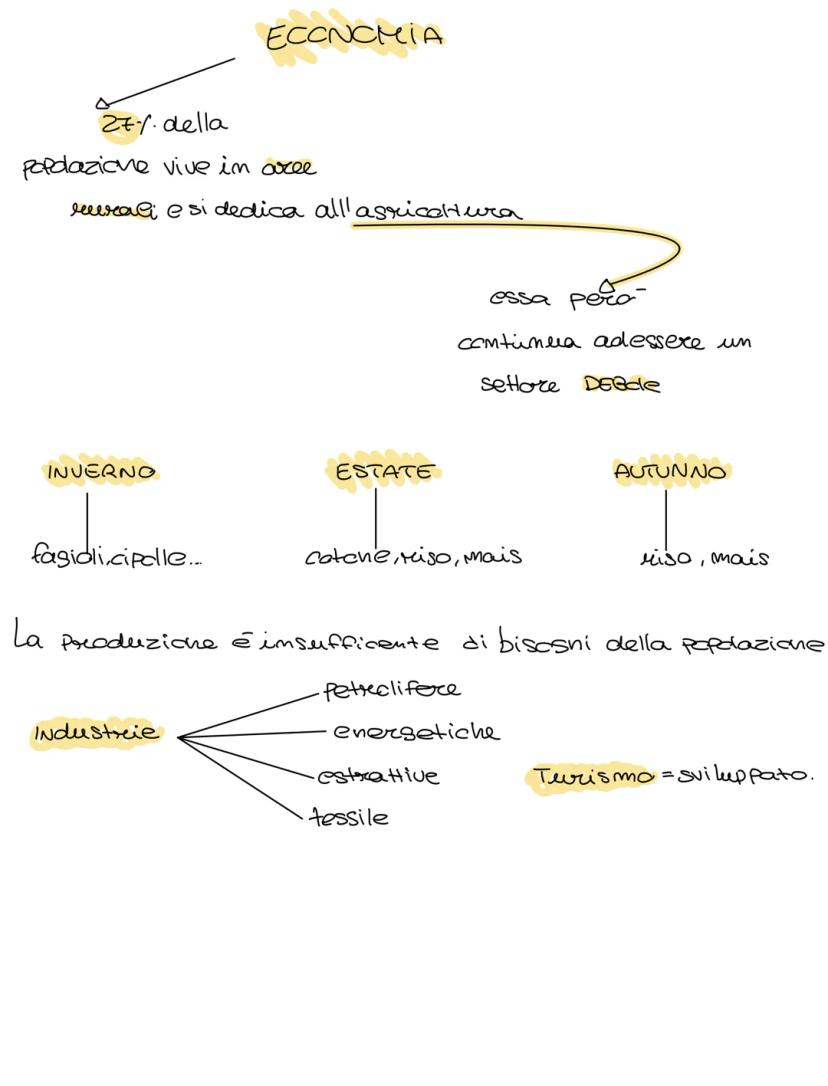 ECONOMIA
27% della
popolazione vive in aree
rurali e si dedica all'agricoltura
essa però
continua adessere un
settore DEBole
INVERNO
ESTATE
AUTUNNO
fagioli,cipolle...
cotone, riso, mais
riso, mais
La Produzione è insufficente di bisogni della popolazione
Industrie
petrolifere
energetiche
estrattive
tessile
Turismo = sviluppato.